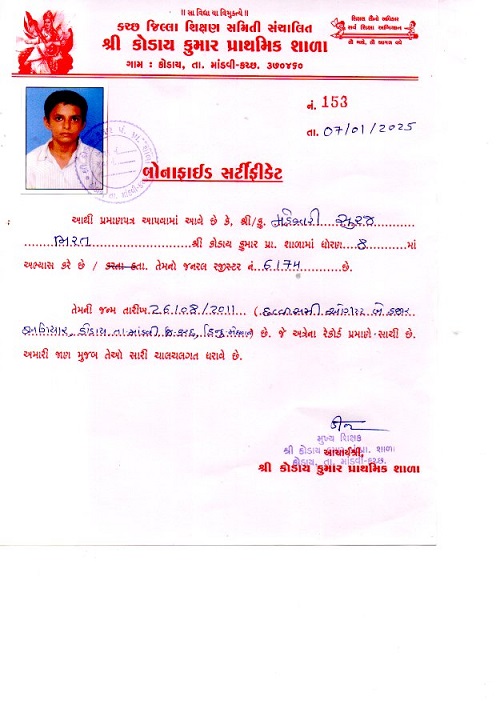 ॥ સા વિદ્યા યા વિમુક્તયે ॥
કચ્છ જિલ્લા શિક્ષણ સમિતી સંચાલિત
શ્રી કોડાય કુમાર પ્રાથમિક શાળા
ગામ : કોડાય, તા. માંડવી-કચ્છ. ૩૭૦૪૬૦
સર્વ શિક્ષા અભિયાન
નં. 153
તા. 07/01/2025
બોનાફાઈડ સર્ટીફીકેટ
આથી પ્રમાણપત્ર આપવામાં આવે છે કે, શ્રી/કુ. મહેશ્વરી સૂરજ
ભરત શ્રી કોડાય કુમાર પ્રા. શાળામાં ધોરણ 8 માં
અભ્યાસ કરે છે / કરતા હતા. તેમનો જનરલ રજીસ્ટર નં. 6174 છે.
તેમની જન્મ તારીખ 26/08/2011 ( છવ્વીસમી ઓગસ્ટ બે હજાર
અગિયાર, કોડાય તા માંડવી જિ કચ્છ, હિન્દુ ) છે. જે અત્રેના રેકોર્ડ પ્રમાણે સાચી છે.
અમારી જાણ મુજબ તેઓ સારી ચાલચલગત ધરાવે છે.
મુખ્ય શિક્ષક
શ્રી કોડાય કુમાર પ્રા. શાળા
આચાર્યશ્રી,
કોડાય, તા. માંડવી-કચ્છ.
શ્રી કોડાય કુમાર પ્રાથમિક શાળા